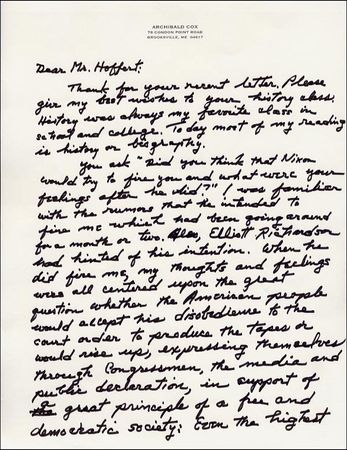 ARCHIBALD COX
78 CONDON POINT ROAD
BROOKSVILLE, ME 04617
Dear Mr. Hoffert:
Thank for your recent letter. Please
give my best wishes to your history class.
History was always my favorite class in
school and college. Today most of my reading
is history or biography.
You ask "Did you think that Nixon
would try to fire you and what were your
feelings after he did?" I was familiar
with the rumors that he intended to
fire me which had been going around
for a month or two. Also, Elliott Richardson
had hinted of his intention. When he
did fire me, my thoughts and feelings
were all centered upon the great
question whether the American people
would accept his disobedience to the
court order to produce the tapes or
would rise up, expressing themselves
through Congressmen, the media and
public declaration, in support of
a great principle of a free and
democratic society: Even the highest